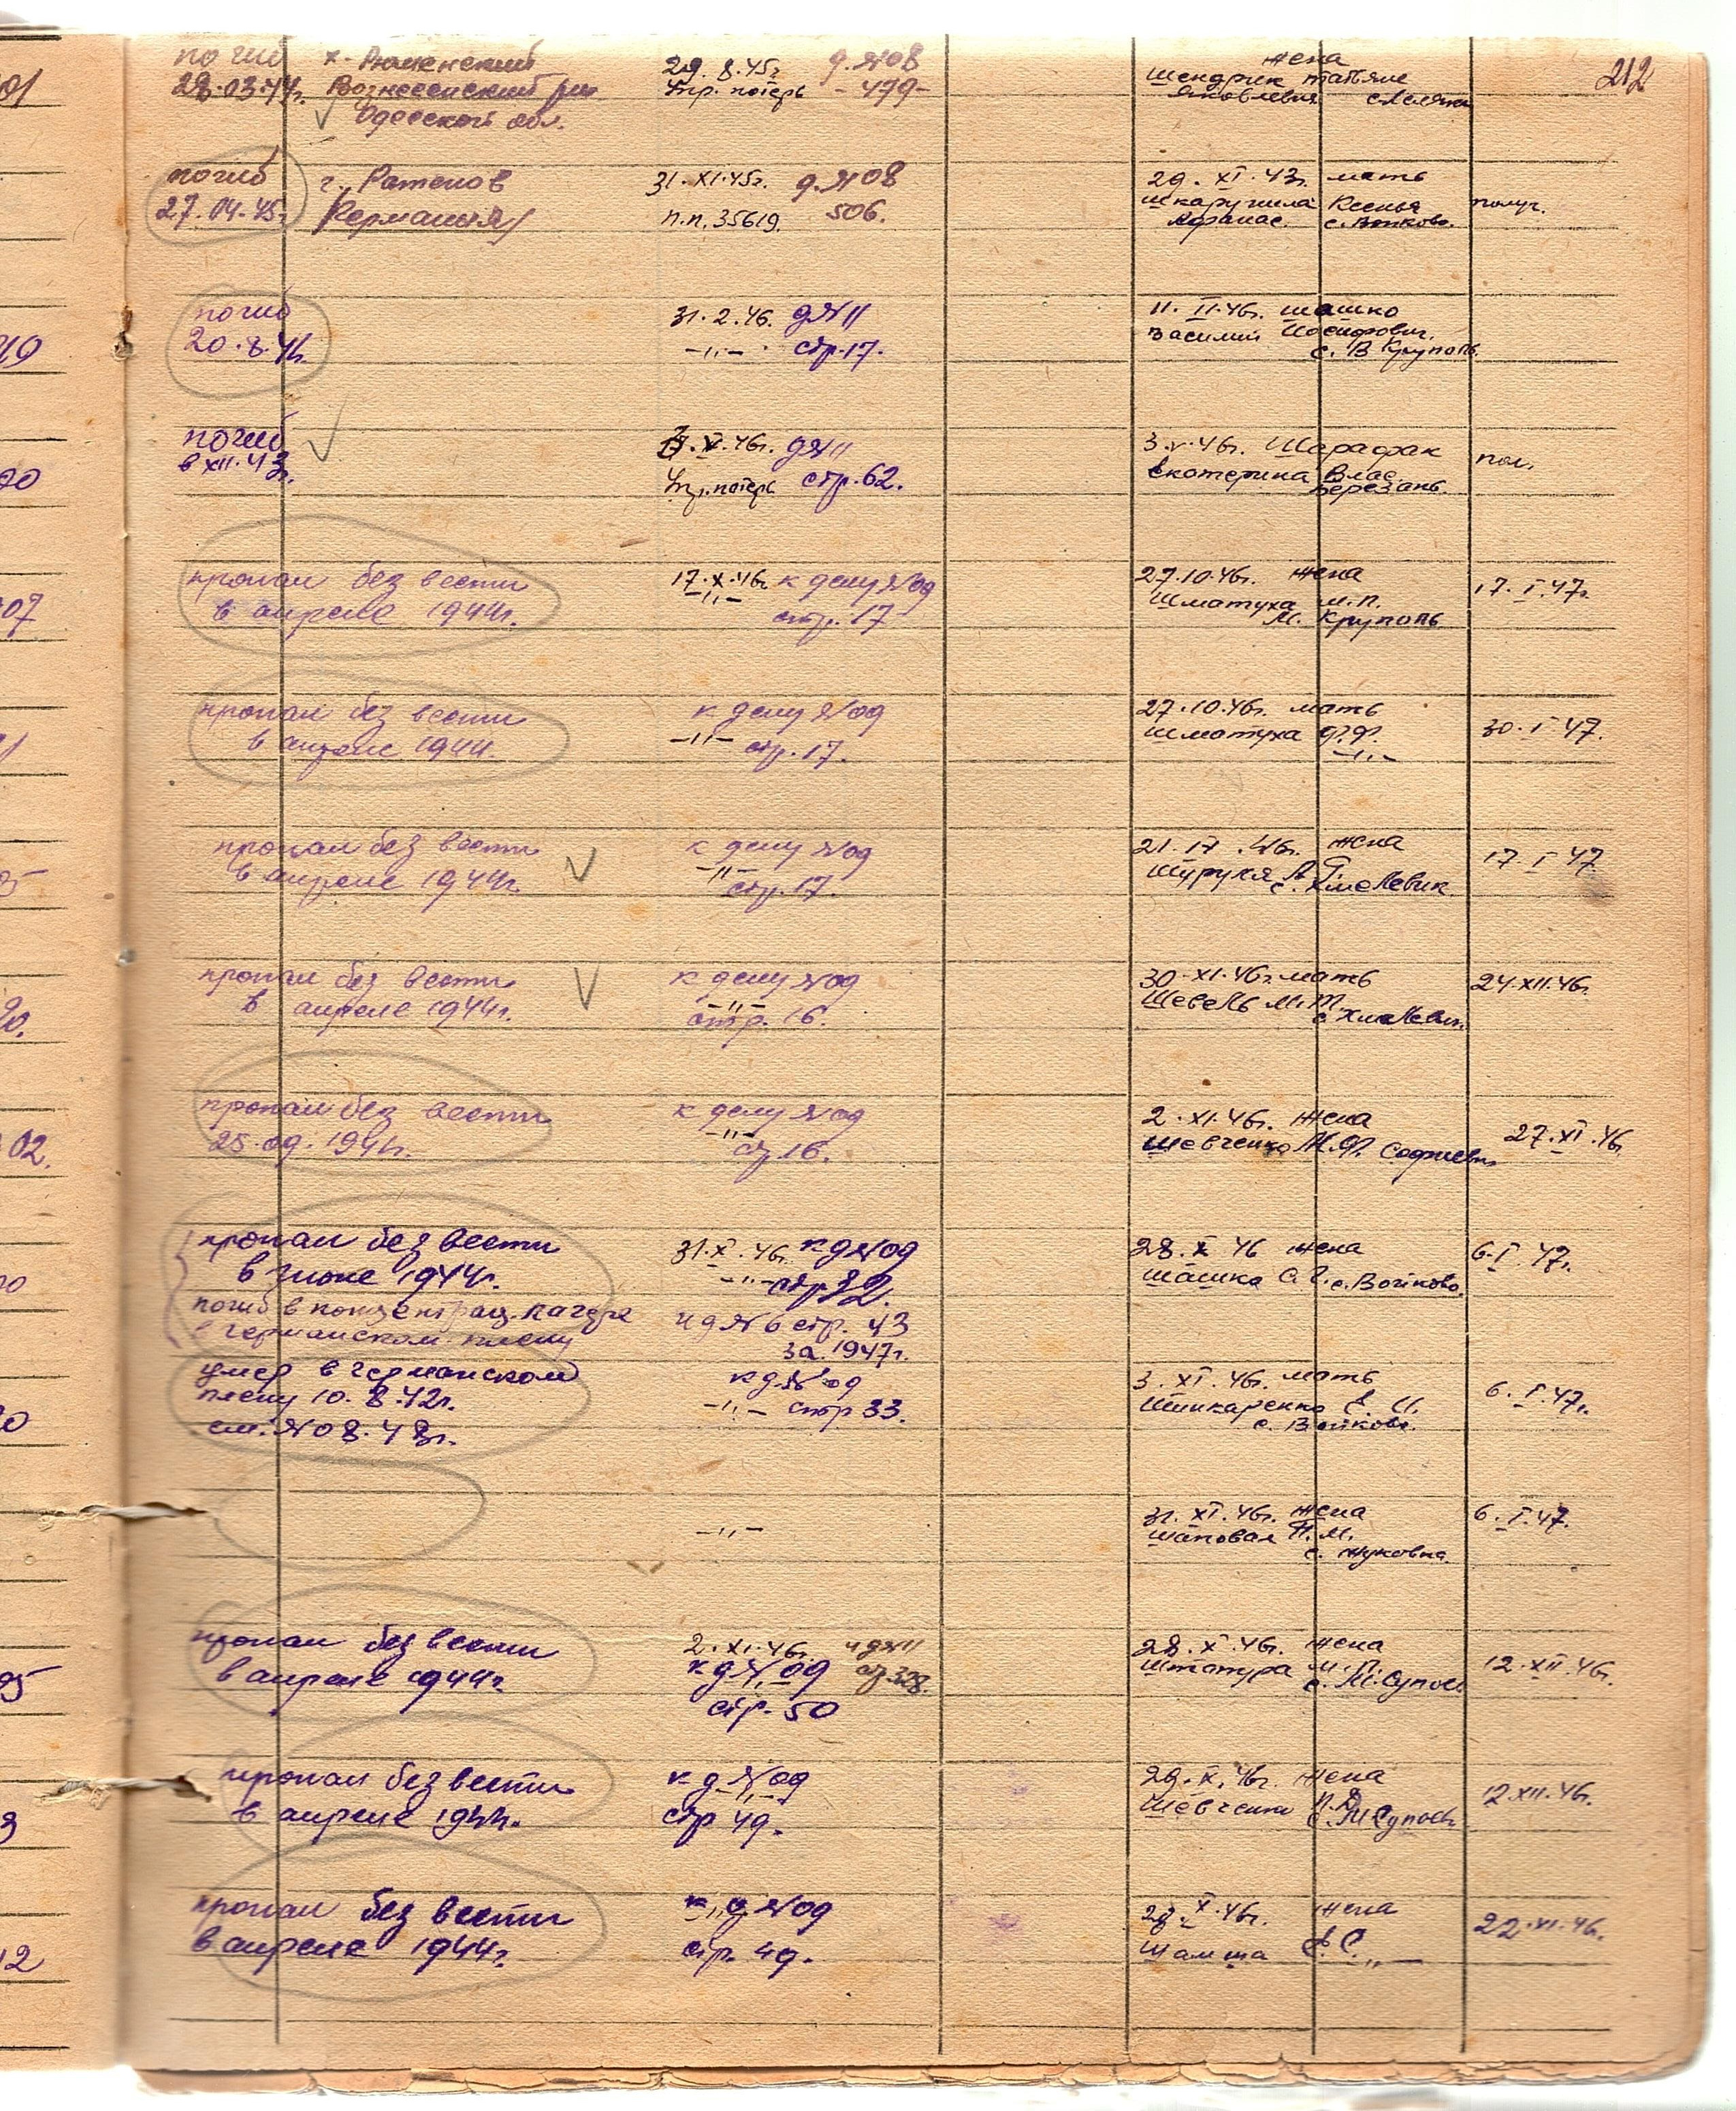 212
погиб
28.03.44г.
Вознесенский р-н
Одесской обл.
29.8.45г.
Упр. потерь
д.№08
-499-
жена
Шендрик Татьяне
Яковлевне
погиб
27.04.45г.
г. Ратенов
/Германия/
31.XI.45г.
п.п. 35619.
д.№08
506.
29.XI.43г. мать
Шкарупила Ксенья
Афанас. с. Войково.
получ.
погиб
20.8.41г.
31.2.46. д№11
-"- стр.17.
11.II.46г. Шашко
Василий Иосифович.
с. В Круполь
погиб
в XII.43г.
.V.46г. д№11
Упр.потерь стр.62.
3.V.46г. Шарафак
Екатерина Влас.
Березань.
пол.
пропал без вести
в апреле 1944г.
17.X.46г. к делу №09
-"- стр. 17
27.10.46г. жена
Шматуха М.П.
М. Круполь
17.I.47г.
пропал без вести
в апреле 1944.
к делу №09
-"- стр.17.
27.10.46г. мать
Шматуха Ф.Ф.
-"-
30.I.47.
пропал без вести
в апреле 1944г.
к делу №09
-"- стр.17.
21.IV.46г. жена
с. Хмелевик
17.I.47.
пропал без вести
в апреле 1944г.
к делу №09
-"-
стр. 16.
30.XI.46г. мать
Шевель М.Т.
с Хмелевик
24.XII.46г.
пропал без вести
25.09.1941г.
к делу №09
-"-
стр.16.
2.XI.46г. жена
Шевченко М.Ф. Софиевк
27.XI.46г.
пропал без вести
в июне 1944г.
31.X.46г. к д№09
-"- стр 32.
28.X 46 жена
Шашка С.Г. с. Войково.
6.I.47г.
погиб в концентрац. лагере
в германском плену
и д№6 стр. 43
за 1947г.
умер в германском
плену 10.8.42г.
см. №08.48г.
к д№09
-"- стр 33.
3.XI.46г. мать
Шинкаренко Е. И.
с. Войково.
6.I.47г.
-"-
31.XI.46г. жена
Шаповал П.М.
с. Жуковка.
6.I.47.
пропал без вести
в апреле 1944г.
2.XI.46г. и д№11
к д№09 стр.328.
стр. 50
28.X.46г. жена
Штатура М. П.
с. М.Супоевк
12.XII.46г.
пропал без вести
в апреле 1944г.
к д №09
-"-
стр 49.
29.X.46г. жена
Шевченко П.Д.
с. М Супоевк
12.XII.46г.
пропал без вести
в апреле 1944г.
к д №09
-"-
стр. 49.
28.X.46г. жена
Шамша Е.С. -"-
22.XI.46г.